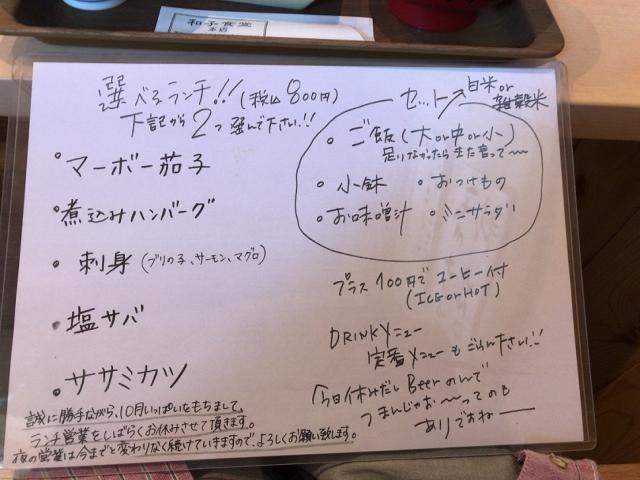 和子食堂
本店
選べるランチ!! (税込 800円)
下記から2つ選んで下さい!!
・マーボー茄子
・煮込みハンバーグ
・刺身 (ブリの子、サーモン、マグロ)
・塩サバ
・ササミカツ
誠に勝手ながら、10月いっぱいをもちまして、
ランチ営業をしばらくお休みさせて頂きます。
夜の営業は今までと変わりなく続けていきますので、よろしくお願い致します。
セット→白米or
雑穀米
・ご飯(大or中or小)
足りなかったらまた言って〜〜
・小鉢 ・おつけもの
・お味噌汁 ・ミニサラダ
プラス100円でコーヒー付
(ICE or HOT)
DRINKメニュー
定番メニューもごらん下さい!!
今日休みだし Beerのんで
つまんじゃお〜〜ってのも
ありですねー